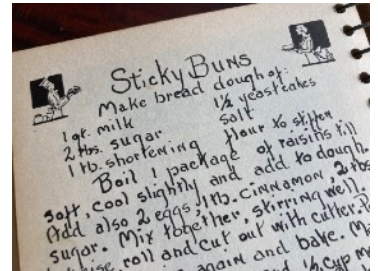 Sticky Buns
Make bread dough of:
1 qt. milk 1½ yeast cakes
2 tbs. sugar salt
1 tb. shortening flour to stiffen
Boil 1 package of raisins till
soft, cool slightly and add to dough.
Add also 2 eggs, 1 tb. cinnamon, 2 tbs
sugar. Mix together, stirring well.
rise, roll and cut out with cutter.
again and bake.
½ cup